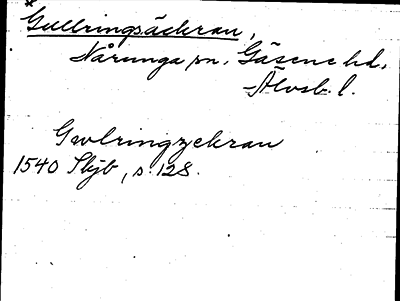 *
Gullringsäckran,
Nårunga sn. Gäsene hd.
Älvsb. l.
Gwlringzekran
1540 Skjb, s. 128.